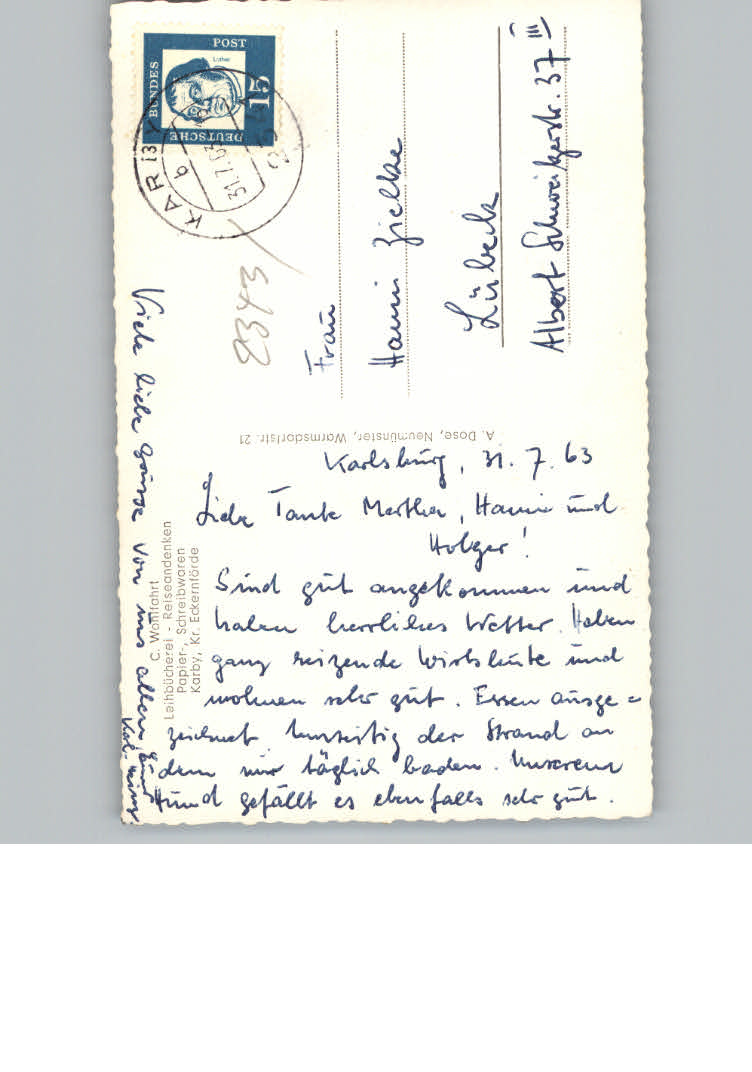 DEUTSCHE
BUNDES
POST
Luther
15
KARBY
b
31.7.63
2343
Frau
Hanni Zielke
Lübeck
Albert Schweitzerstr. 37 III
A. Dose, Neumünster, Warmsdorfstr. 21
Karlsburg, 31. 7. 63
Liebe Tante Martha, Hanni und
Holger!
Sind gut angekommen und
haben herrliches Wetter. Haben
ganz reizende Wirtsleute und
wohnen sehr gut. Essen ausge=
zeichnet. der Strand an
dem wir täglich baden. Unserem
Hund gefällt es ebenfalls sehr gut.
Viele liebe Grüsse von uns allen
Karl-Heinz.
C. Wohlfahrt
Leihbücherei - Reiseandenken
Papier-, Schreibwaren
Karby, Kr. Eckernförde